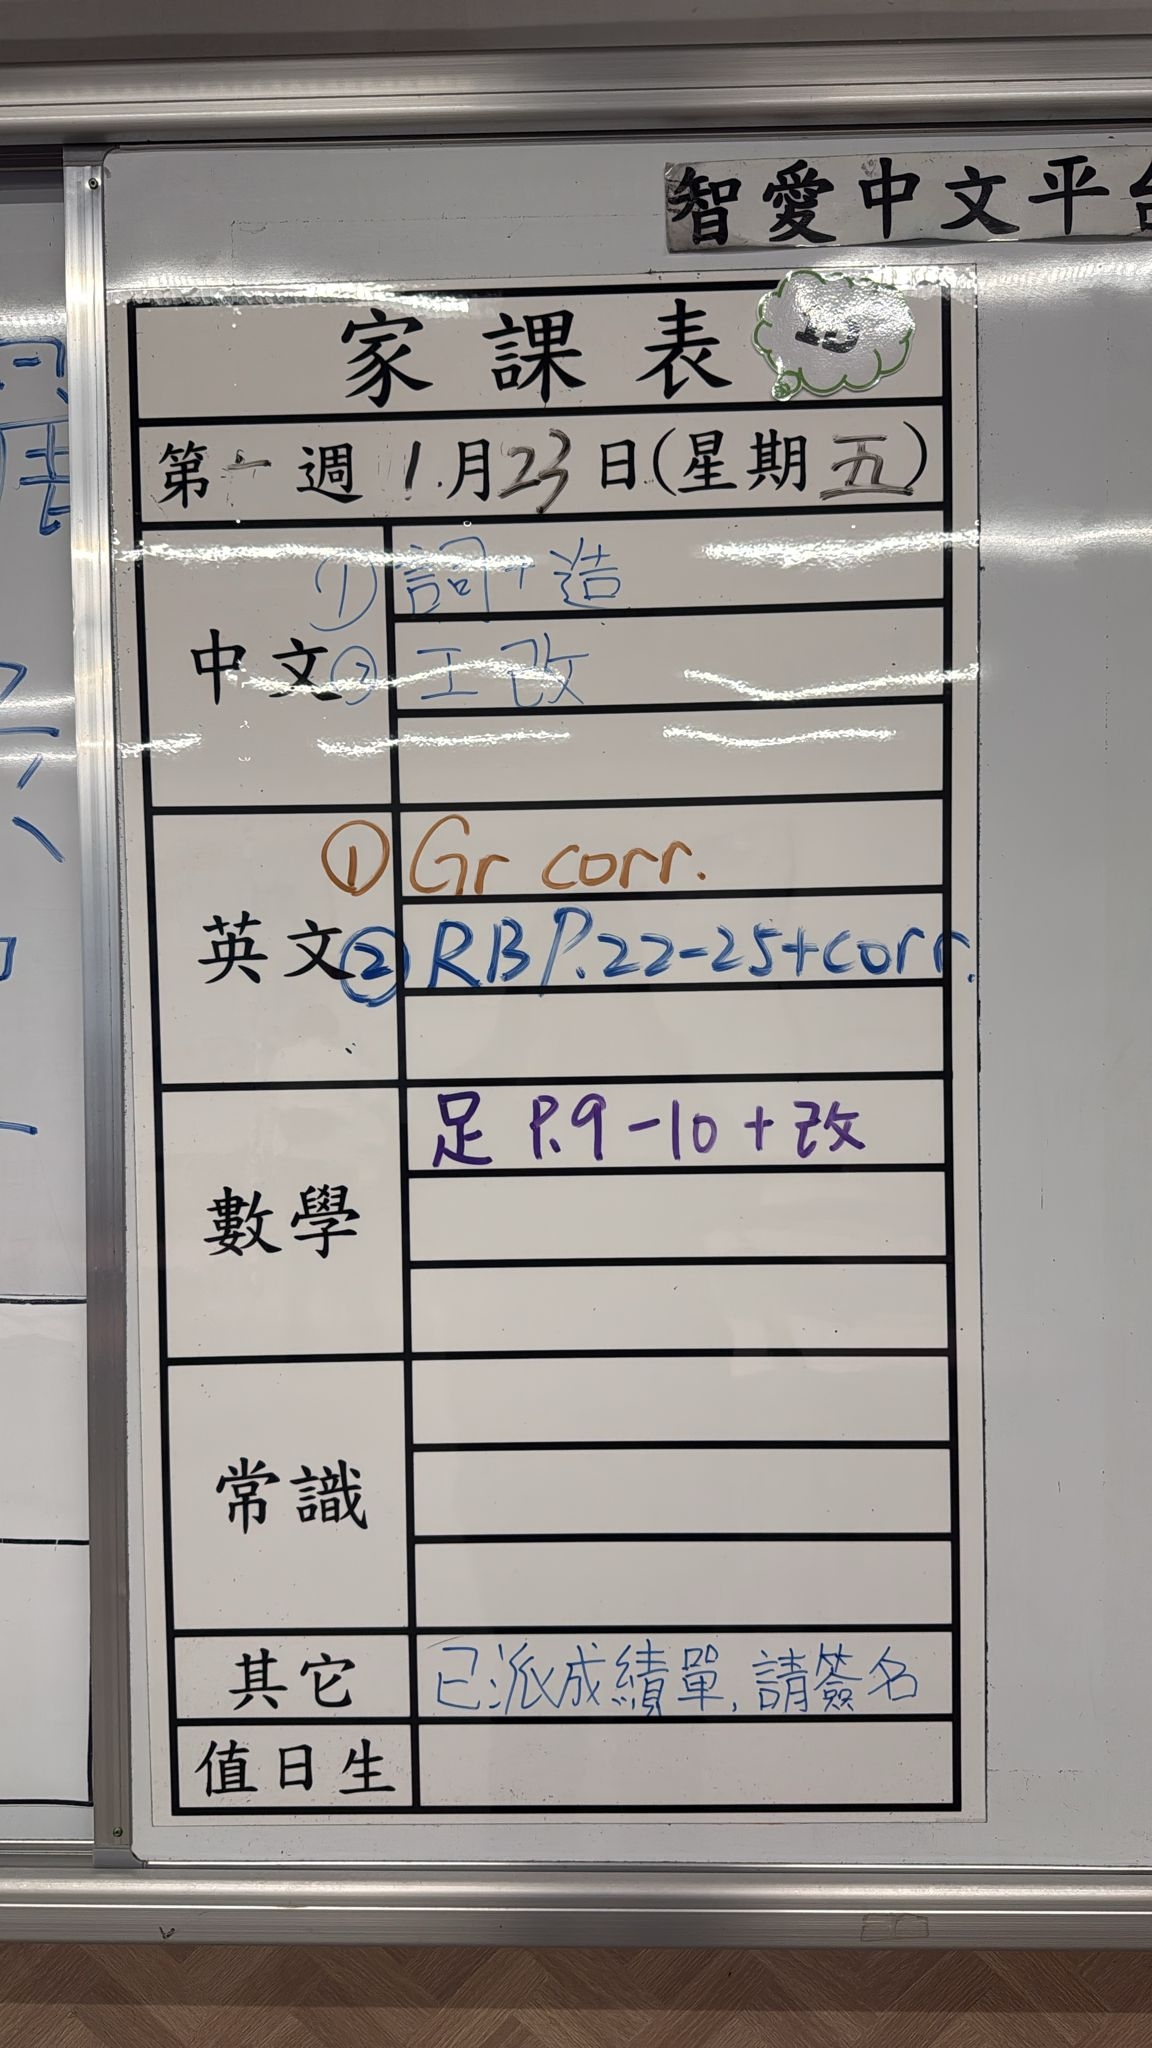 智愛中文平
家課表
第一週 1月23日(星期五)
中文
① 詞+造
② 工改
英文
① Gr corr.
② RB P.22-25+corr.
數學
足 P.9-10+改
常識
其它
已派成績單,請簽名
值日生